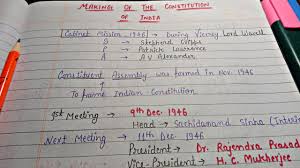 MAKING OF THE CONSTITUTION
OF INDIA
Cabinet Mission 1946 → During Viceroy Lord Wavell
S → Stepherd Cripps
P → Patrick Lawrence
A → A.V Alexander
Constituent Assembly was formed in Nov 1946
To frame Indian Constitution.
1st Meeting → 9th Dec. 1946
Head → Sachidanand Sinha (Interim
Next Meeting → 11th Dec. 1946
President → Dr. Rajendra Prasad
Vice-President → H.C. Mukherjee